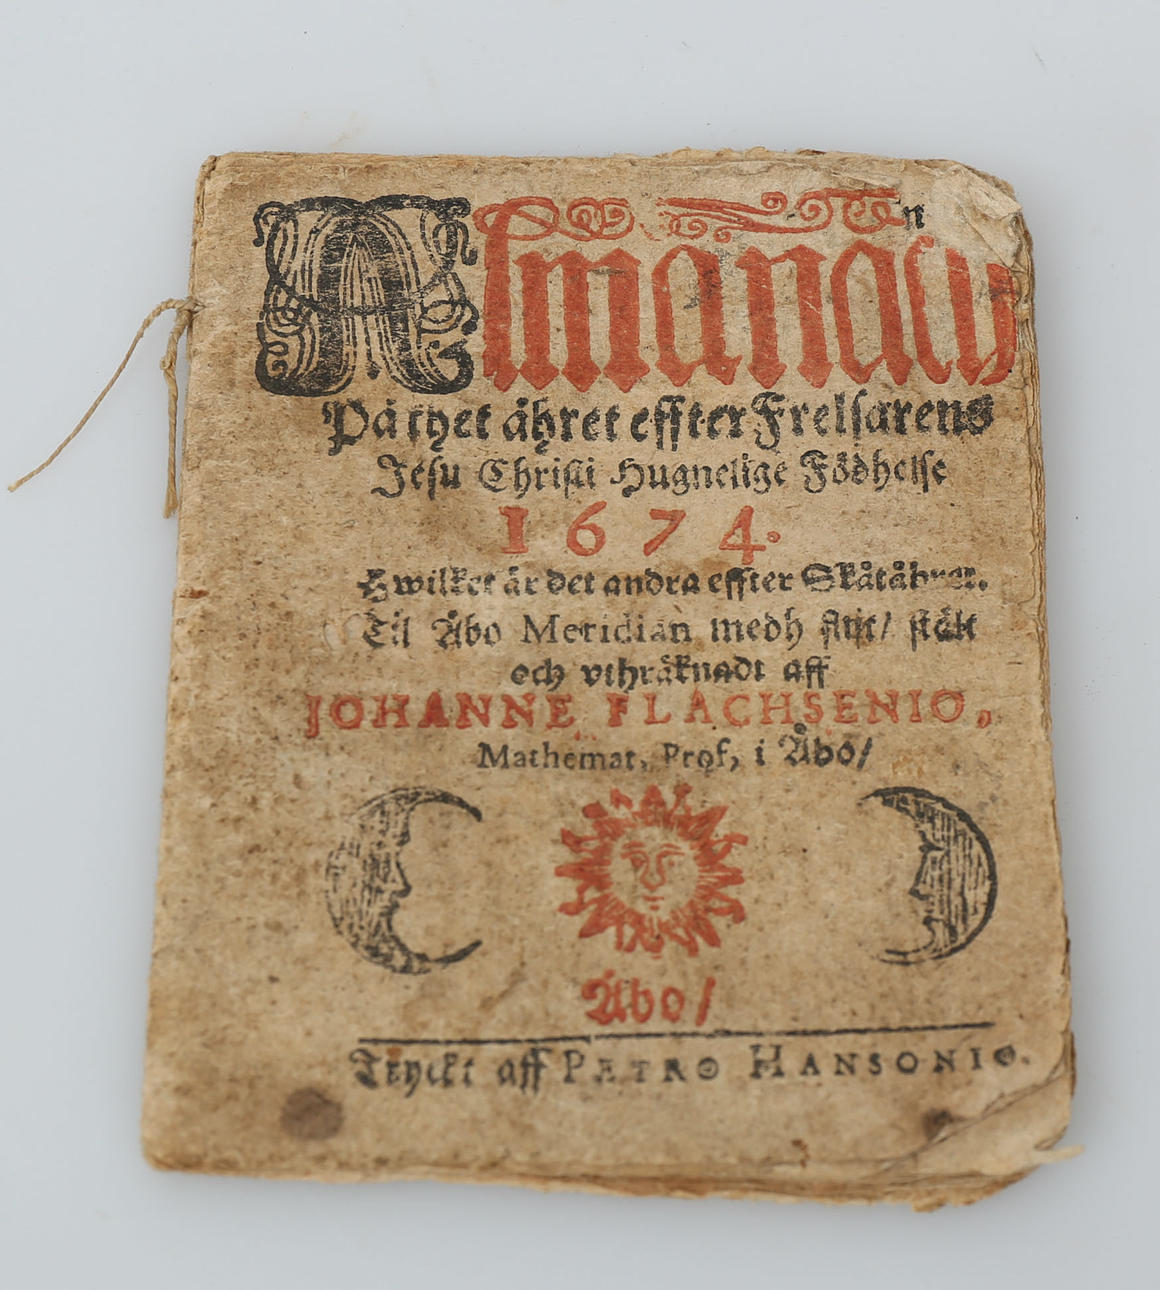 En
Almanach
På thet åhret effter Frelsarens
Jesu Christi Hugnelige Födhelse
1674.
Hwilket är det andra effter Skåtåhret.
Til Åbo Meridian medh flijt/ stält
och vthräknadt aff
JOHANNE FLACHSENIO,
Mathemat, Prof, i Åbo/
Åbo/
Tryckt aff PETRO HANSONIO.